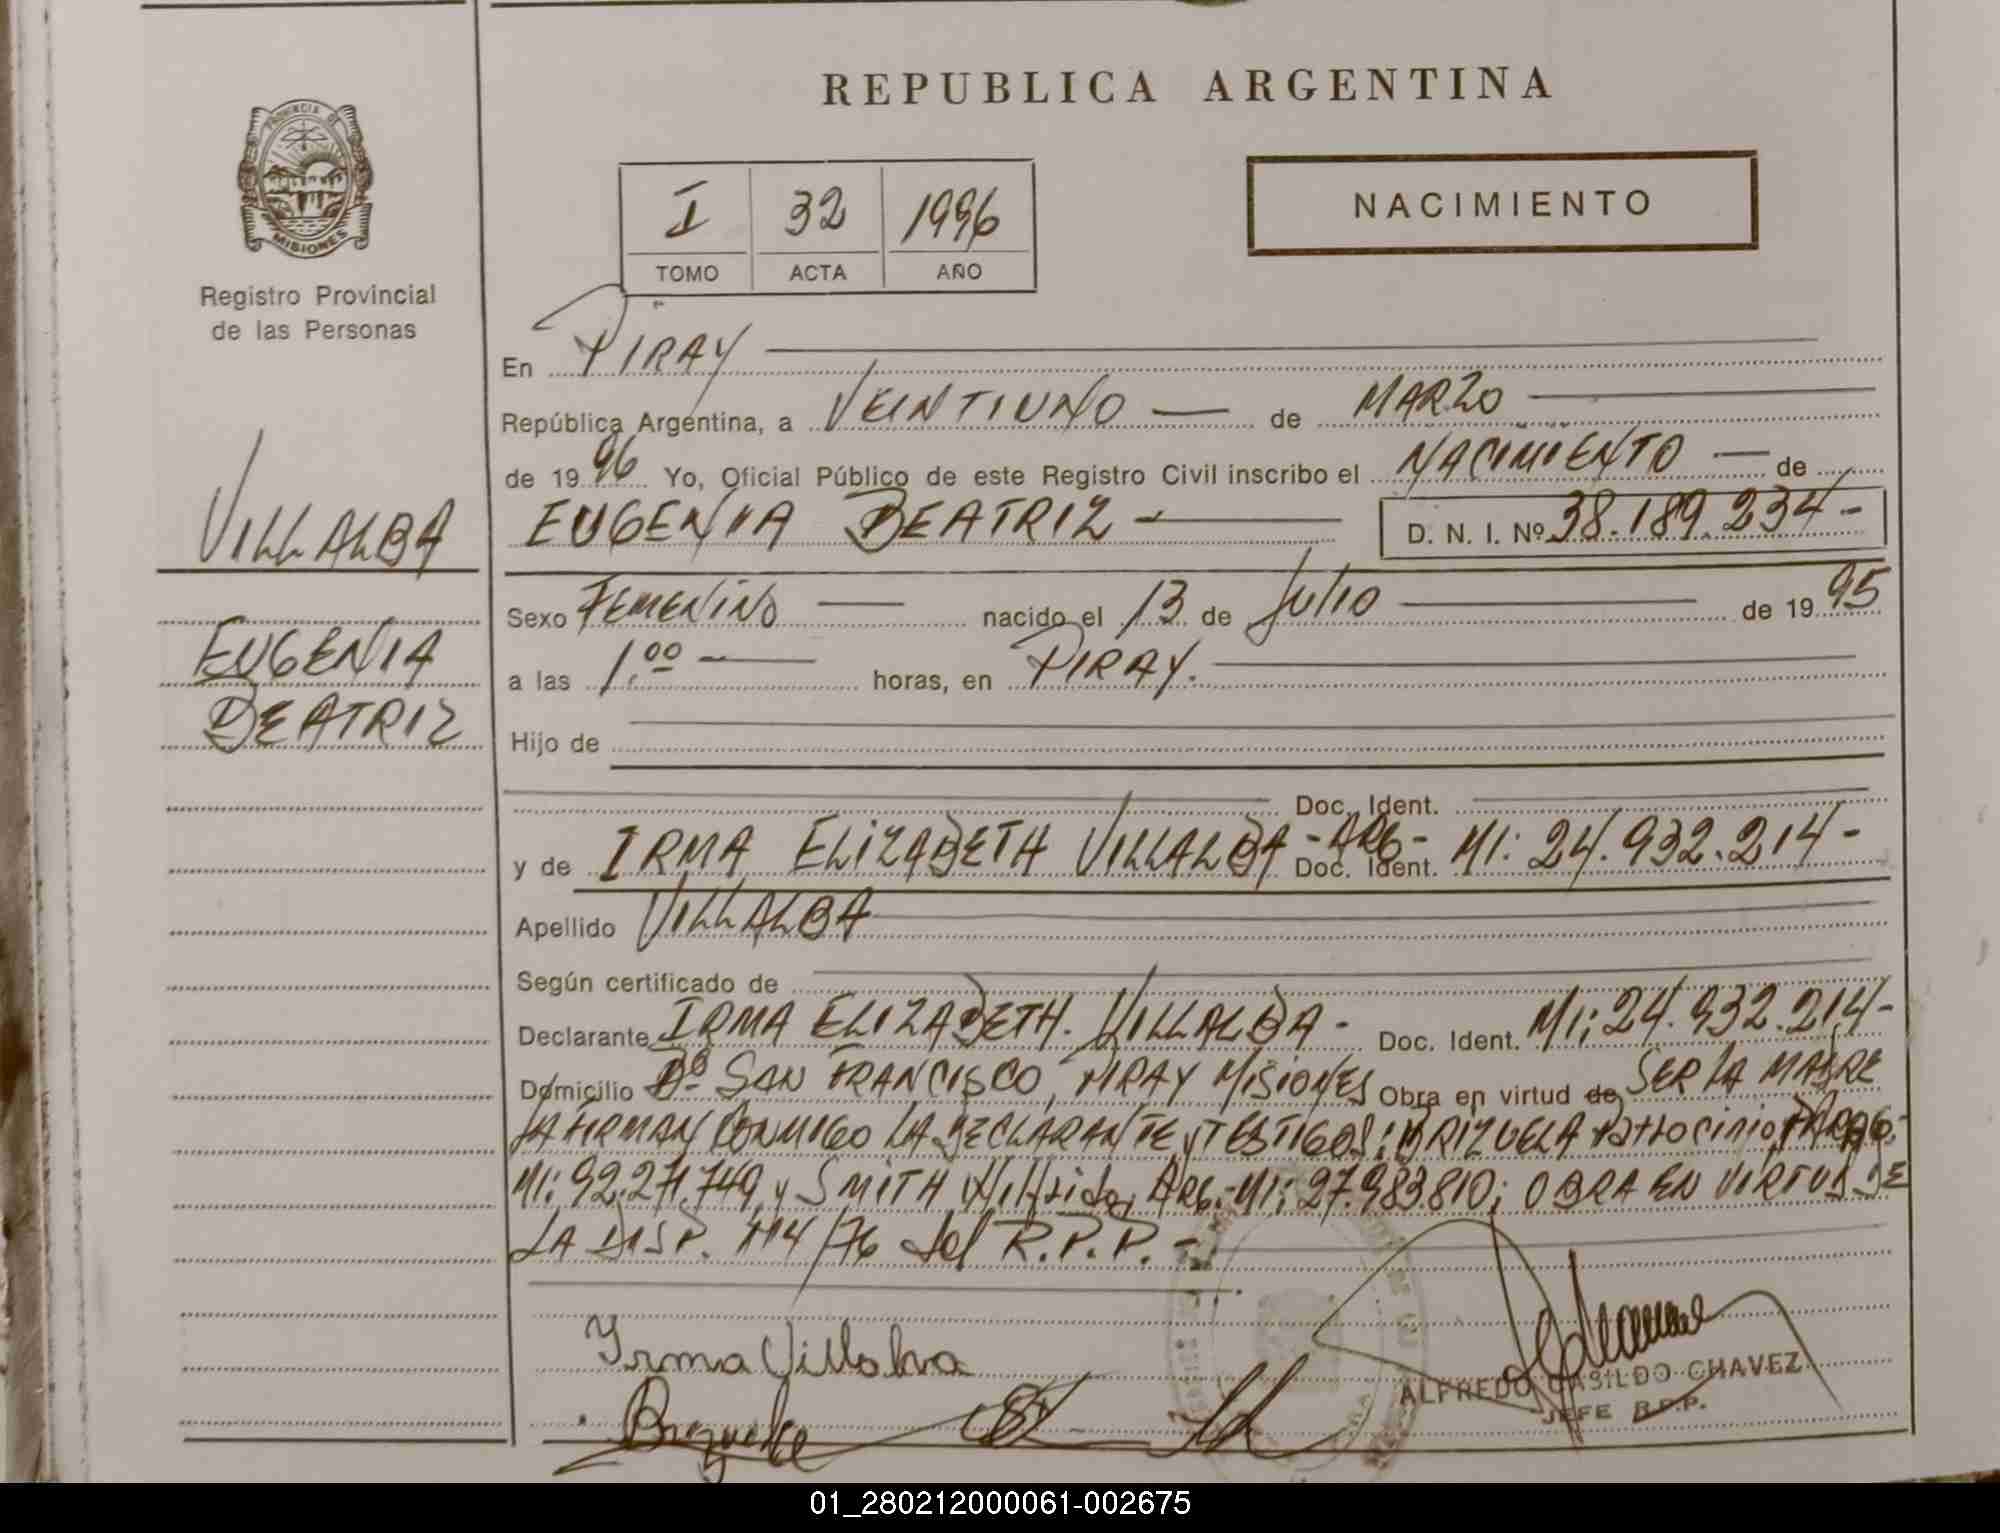 REPUBLICA ARGENTINA
PROVINCIA DE
MISIONES
Registro Provincial
de las Personas
I 32 1996
TOMO ACTA AÑO
NACIMIENTO
VILLALBA
EUGENIA
BEATRIZ
En PIRAY
República Argentina, a VEINTIUNO de MARZO
de 1996 Yo, Oficial Público de este Registro Civil inscribo el NACIMIENTO de
EUGENIA BEATRIZ - D. N. I. Nº 38.189.234-
Sexo FEMENINO nacido el 13 de Julio de 1995
a las 1.00 horas, en PIRAY.
Hijo de
Doc. Ident.
y de IRMA ELIZABETH VILLALBA -ARG- Doc. Ident. MI: 24.932.214-
Apellido VILLALBA
Según certificado de
Declarante IRMA ELIZABETH. VILLALBA - Doc. Ident. MI: 24.932.214-
Domicilio Bº SAN FRANCISCO, PIRAY MISIONES Obra en virtud de SER LA MADRE
FIRMAN CONMIGO LA DECLARANTE y TESTIGOS: BRIZUELA Patrocinio,
MI: 92.271.749 y SMITH Wilfrido, ARG.-MI: 27.983.810; OBRA EN VIRTUD DE
LA DISP. 114/76 del R.P.P.-
Irma Villalva
Brizuela
ALFREDO CASILDO CHAVEZ
JEFE R.P.P.
01_280212000061-002675